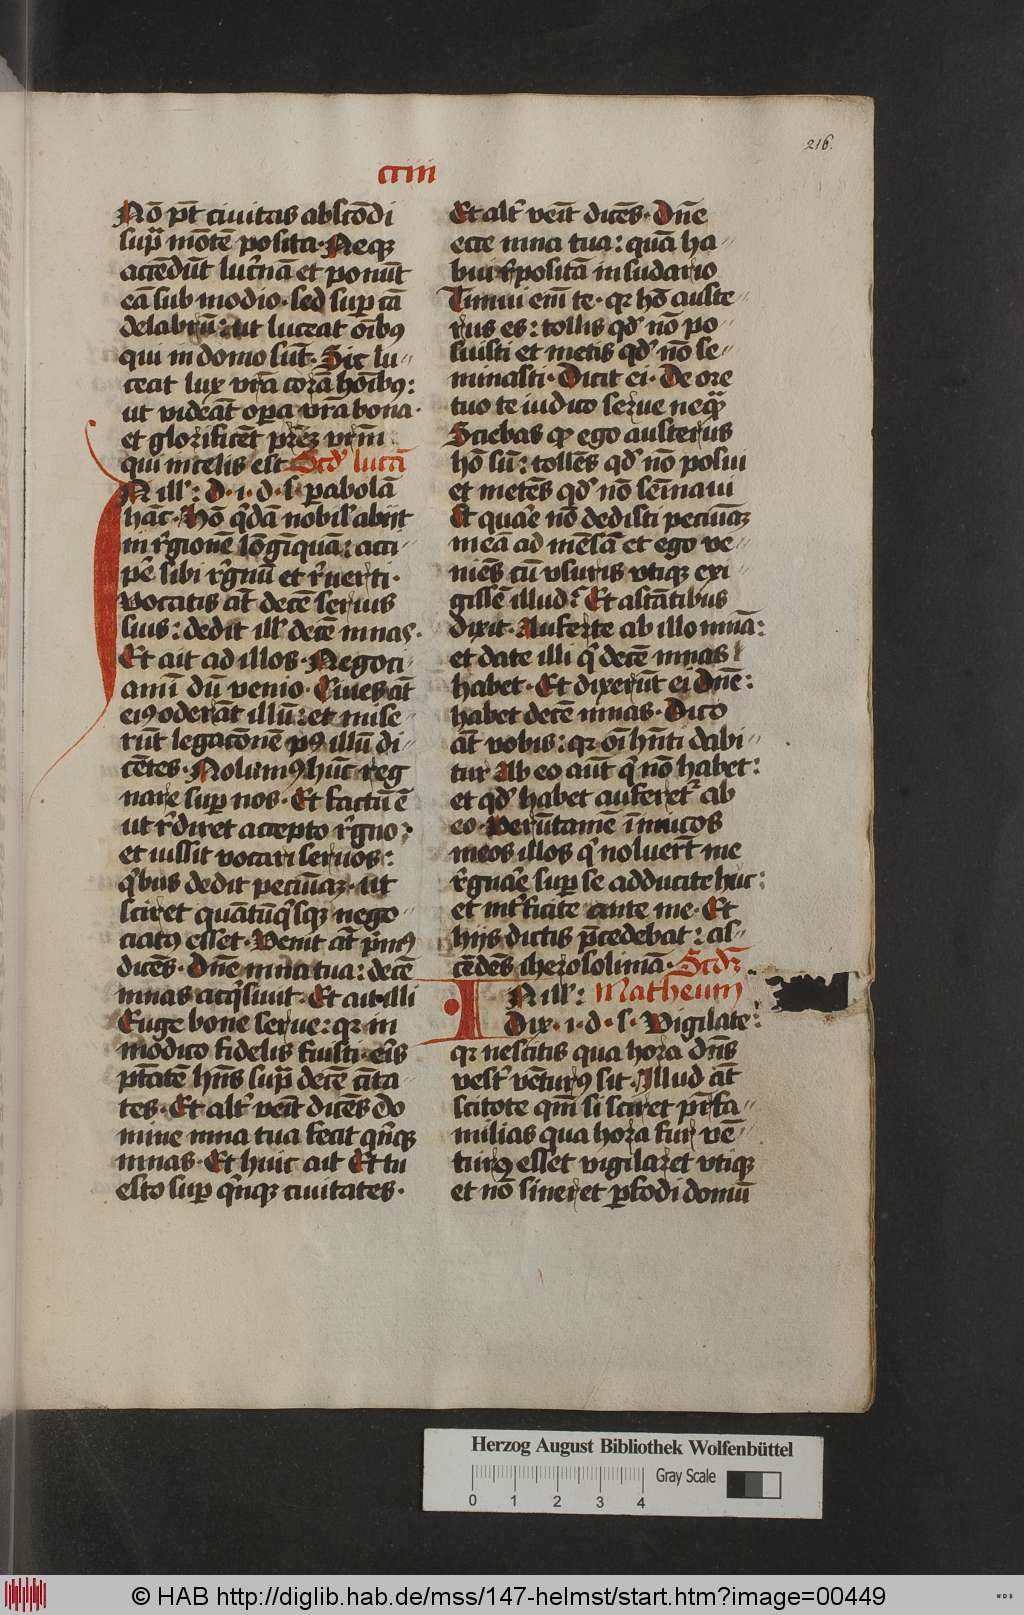 216.
cciiii
Nō pt̄ ciuitas abscōdi
supͣ mōtē posita · Neqꝫ
accēdūt lucͬnā et ponūt
eā sub modio · sed suꝑ cā
delabrū : ut luceat oībꝰ
qui in domo sūt · Sic lu〃
ceat lux vrā corā hoībꝰ :
ut videāt oꝑa vrā bona ·
et glorificēt pr̄eꝫ vrm̄
qui in celis est Scdꝫ lucā
N illꝰ : d · i · d · s · ꝑabolā
hāc · Hō qͥdā nobilꝰ abijt
in rͤgionē lōgīquā : acci〃
pͤe sibi rͤgnū et rͤuerti ·
Vocatis āt decē seruis
suis : dedit illꝰ decē mnas ·
Et ait ad illos · Negoci〃
amī dū venio · Ciues āt
eiꝰ oderāt illū : et mise〃
rūt legacōnē pꝰ illū di〃
cētes · Nolumꝰ hūc reg
nare suꝑ nos · Et factū ē
ut rͤdiret accepto rͤgno :
et iussit vocari seruos :
qͥbus dedit pecūiaꝫ · ut
sciret quātūqͥsqꝫ nego〃
ciatꝰ esset · Venit āt pͥmꝰ
dicēs · Dn̄e mna tua : decē
mnas acqͥsiuit · Et ait illi
Euge bone serue : qꝛ in
modico fidelis fuisti · eīs
pt̄atē hn̄s supͣ decē ciīta〃
tes · Et altͬ veīt dicēs do
mine mna tua fecit qͥnqꝫ
mnas · Et huic ait Et tu
esto suꝑ qͥnqꝫ ciuitates ·
Et altͬ veīt dicēs · Dn̄e
ecce mna tua : quā ha〃
bui rͤpositā in sudario
Timui em̄ te · qꝛ hō auste〃
rus es : tollis qdꝫ nō po〃
suisti et metis qdꝫ nō se〃
minasti · Dicit ei · De ore
tuo te iudico serue neqͣꝫ
Sciebas qꝫ ego austerus
hō sū : tollēs qdꝫ nō posui
et metēs qdꝫ nō semīaui
Et quaͤre nō dedisti pecūiaꝫ
meā ad mēsā et ego ve〃
niēs cū vsuris vtiqꝫ exi〃
gissē illud ? Et astātibus
dixit · Auferte ab illo mnā :
et date illi qͥ decē mnas
habet · Et dixerūt ei Dn̄e :
habet decē mnas · Dico
āt vobis : qꝛ oī hn̄ti dabi〃
tur Ab eo aūt qͥ nō habet :
et qdꝫ habet auferetꝛ ab
eo · Verūtamē īimicos
meos illos qͥ noluerūt me
rͤgnaͤre suꝑ se adducite huc :
et intͬficite ante me · Et
hijs dictis p̄cedebat : as〃
cēdēs iherosolimā · Scdꝫ
IN illꝰ : Matheum
Dix · i · d · s · Vigilate :
qꝛ nescitis qua hora dn̄s
vestͬ vēturꝰ sit · Illud āt
scitote qm̄ si sciret pr̄fa〃
milias qua hora fur vē〃
turꝰ esset vigilaret vtiqꝫ
et nō sineret ꝑfodi domū
Herzog August Bibliothek Wolfenbüttel
Gray Scale
0 1 2 3 4
© HAB http://diglib.hab.de/mss/147-helmst/start.htm?image=00449
WDB